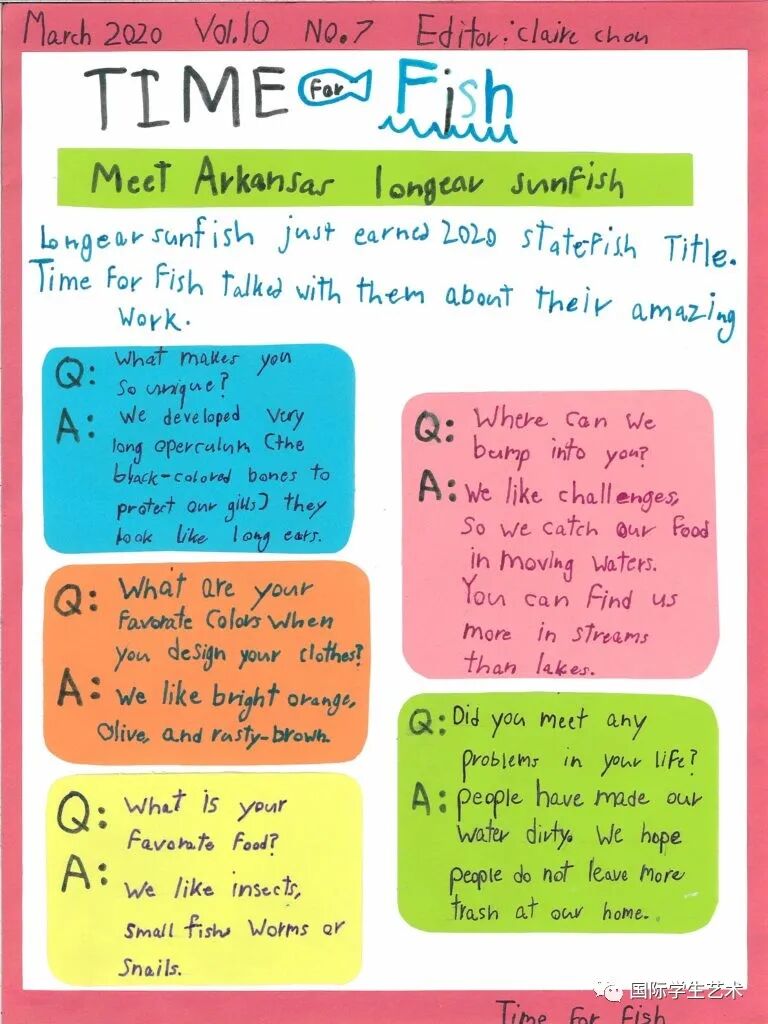 March 2020 Vol.10 No.7 Editor: claire chou
TIME For Fish
Meet Arkansas longear sunfish
Longear sunfish just earned 2020 state-fish Title.
Time For Fish talked with them about their amazing
work.
Q: What makes you
so unique?
A: We developed very
long operculum (the
black-colored bones to
protect our gills) they
look like long ears.
Q: What are your
favorate colors when
you design your clothes?
A: We like bright orange,
Olive, and rusty-brown.
Q: What is your
favorate food?
A: We like insects,
small fish, worms or
snails.
Q: Where can we
bump into you?
A: We like challenges,
so we catch our food
in moving waters.
You can find us
more in streams
than lakes.
Q: Did you meet any
problems in your life?
A: people have made our
water dirty. We hope
people do not leave more
trash at our home.
国际学生艺术
Time for Fish